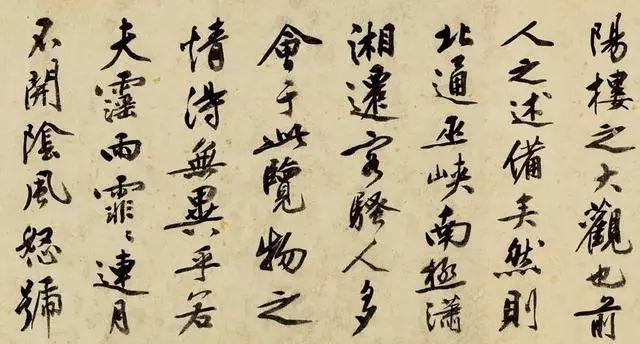 陽樓之大觀也前
人之述備矣然則
北通巫峽南極瀟
湘遷客騷人多
會于此覽物之
情得無異乎若
夫霪雨霏〻連月
不開陰風怒號